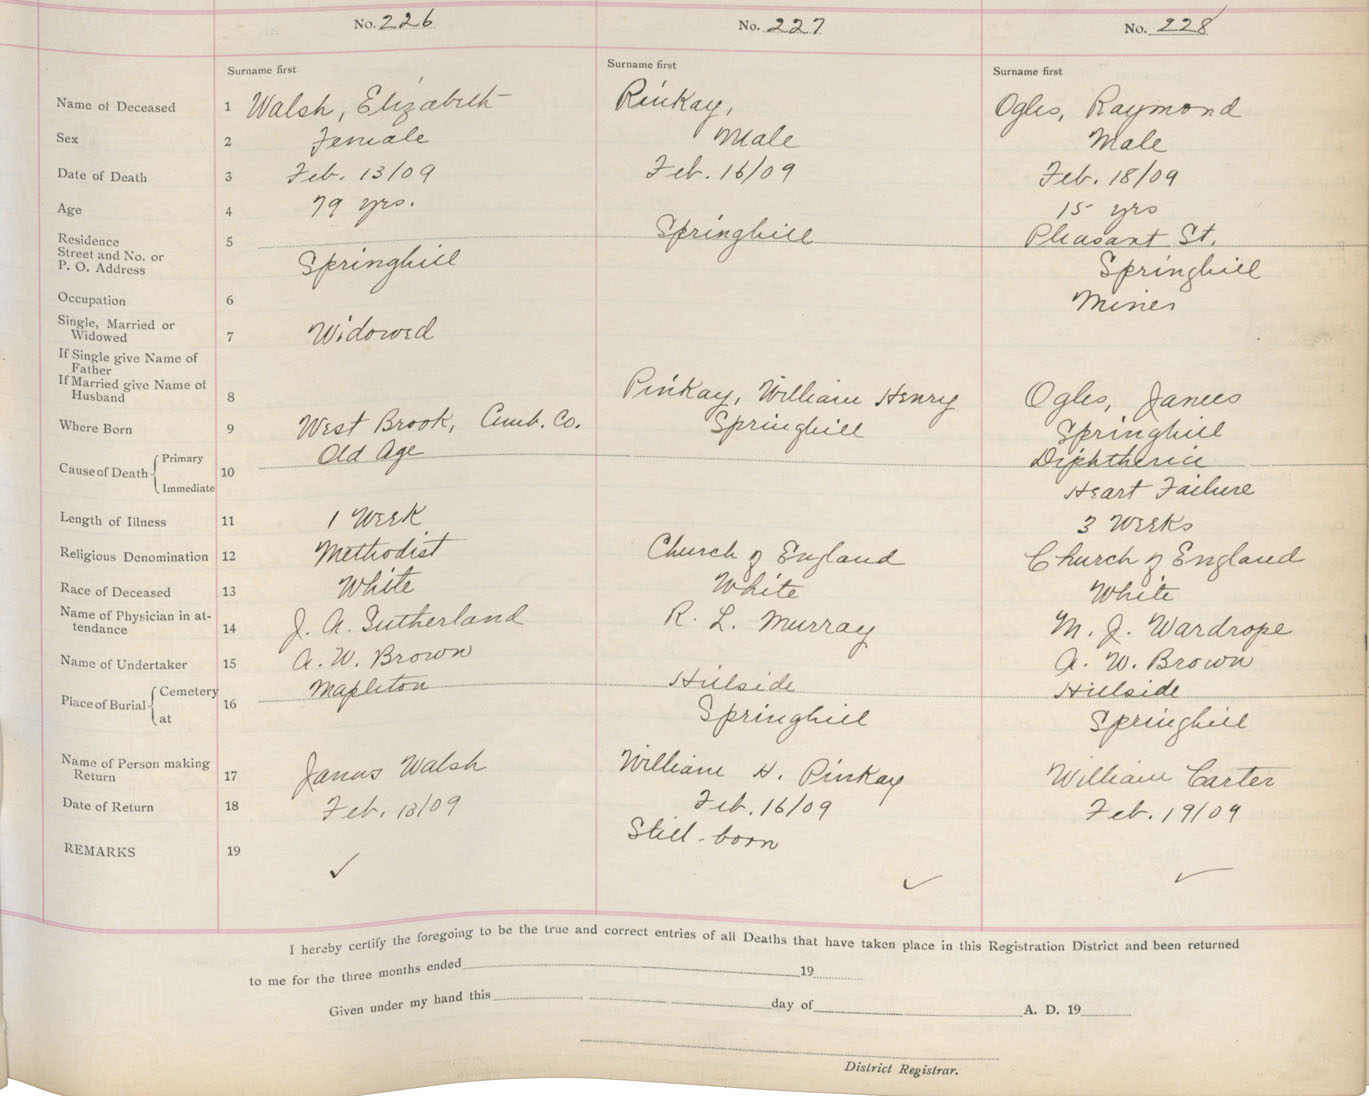 No. 226 No. 227 No. 228
Surname first Surname first Surname first
Name of Deceased 1 Walsh, Elizabeth Pinkay, Ogles, Raymond
Sex 2 Female Male Male
Date of Death 3 Feb. 13/09 Feb. 16/09 Feb. 18/09
Age 4 79 yrs. 15 yrs
Residence 5 Springhill Pleasant St.
Street and No. or
P. O. Address Springhill Springhill
Occupation 6 Miner
Single, Married or
Widowed 7 Widowed
If Single give Name of
Father
If Married give Name of
Husband 8 Pinkay, William Henry Ogles, James
Where Born 9 West Brook, Cumb. Co. Springhill Springhill
Cause of Death Primary 10 Old Age Diphtheria
Immediate Heart Failure
Length of Illness 11 1 Week 3 Weeks
Religious Denomination 12 Methodist Church of England Church of England
Race of Deceased 13 White White White
Name of Physician in at-
tendance 14 J. A. Sutherland R. L. Murray M. J. Wardrope
Name of Undertaker 15 A. W. Brown A. W. Brown
Place of Burial Cemetery 16 Mapleton Hillside Hillside
at Springhill Springhill
Name of Person making
Return 17 James Walsh William H. Pinkay William Carter
Date of Return 18 Feb. 13/09 Feb. 16/09 Feb. 19/09
REMARKS 19 Still-born
I hereby certify the foregoing to be the true and correct entries of all Deaths that have taken place in this Registration District and been returned
to me for the three months ended 19
Given under my hand this day of A. D. 19
District Registrar.